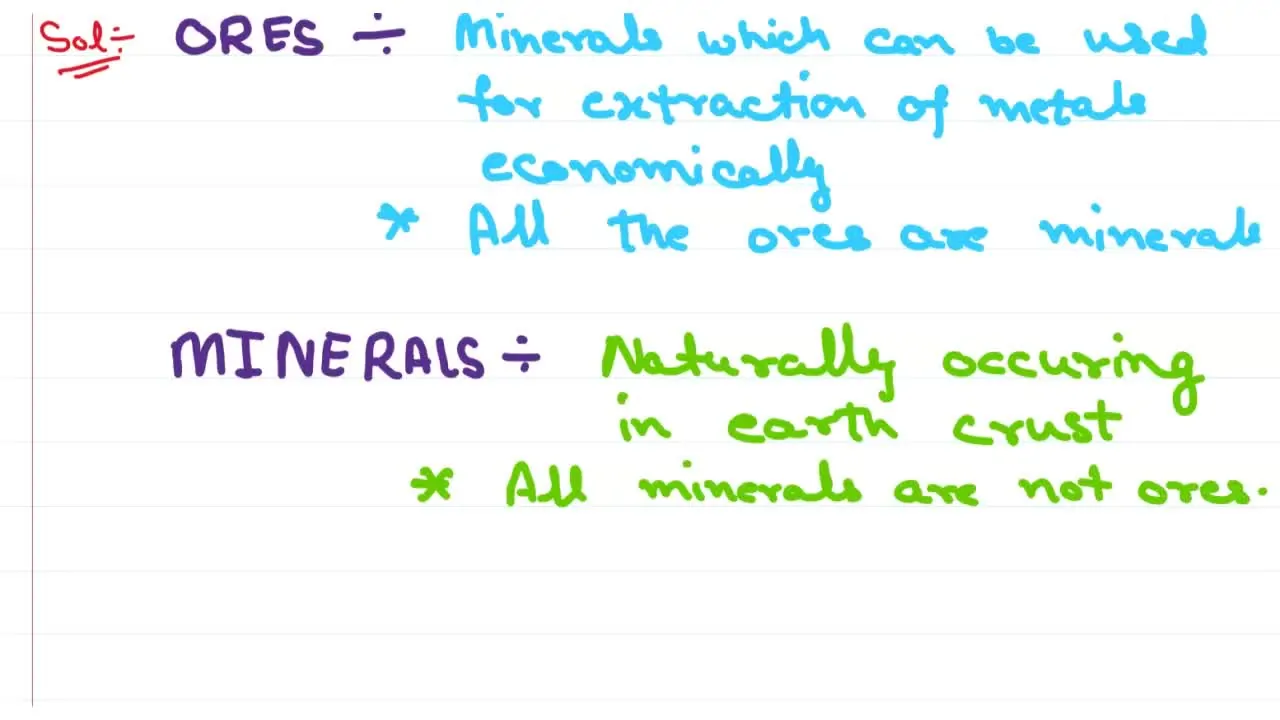 Sol÷ ORES ÷ Minerals which can be used
for extraction of metals
economically
* All the ores are minerals
MINERALS ÷ Naturally occuring
in earth crust
* All minerals are not ores.